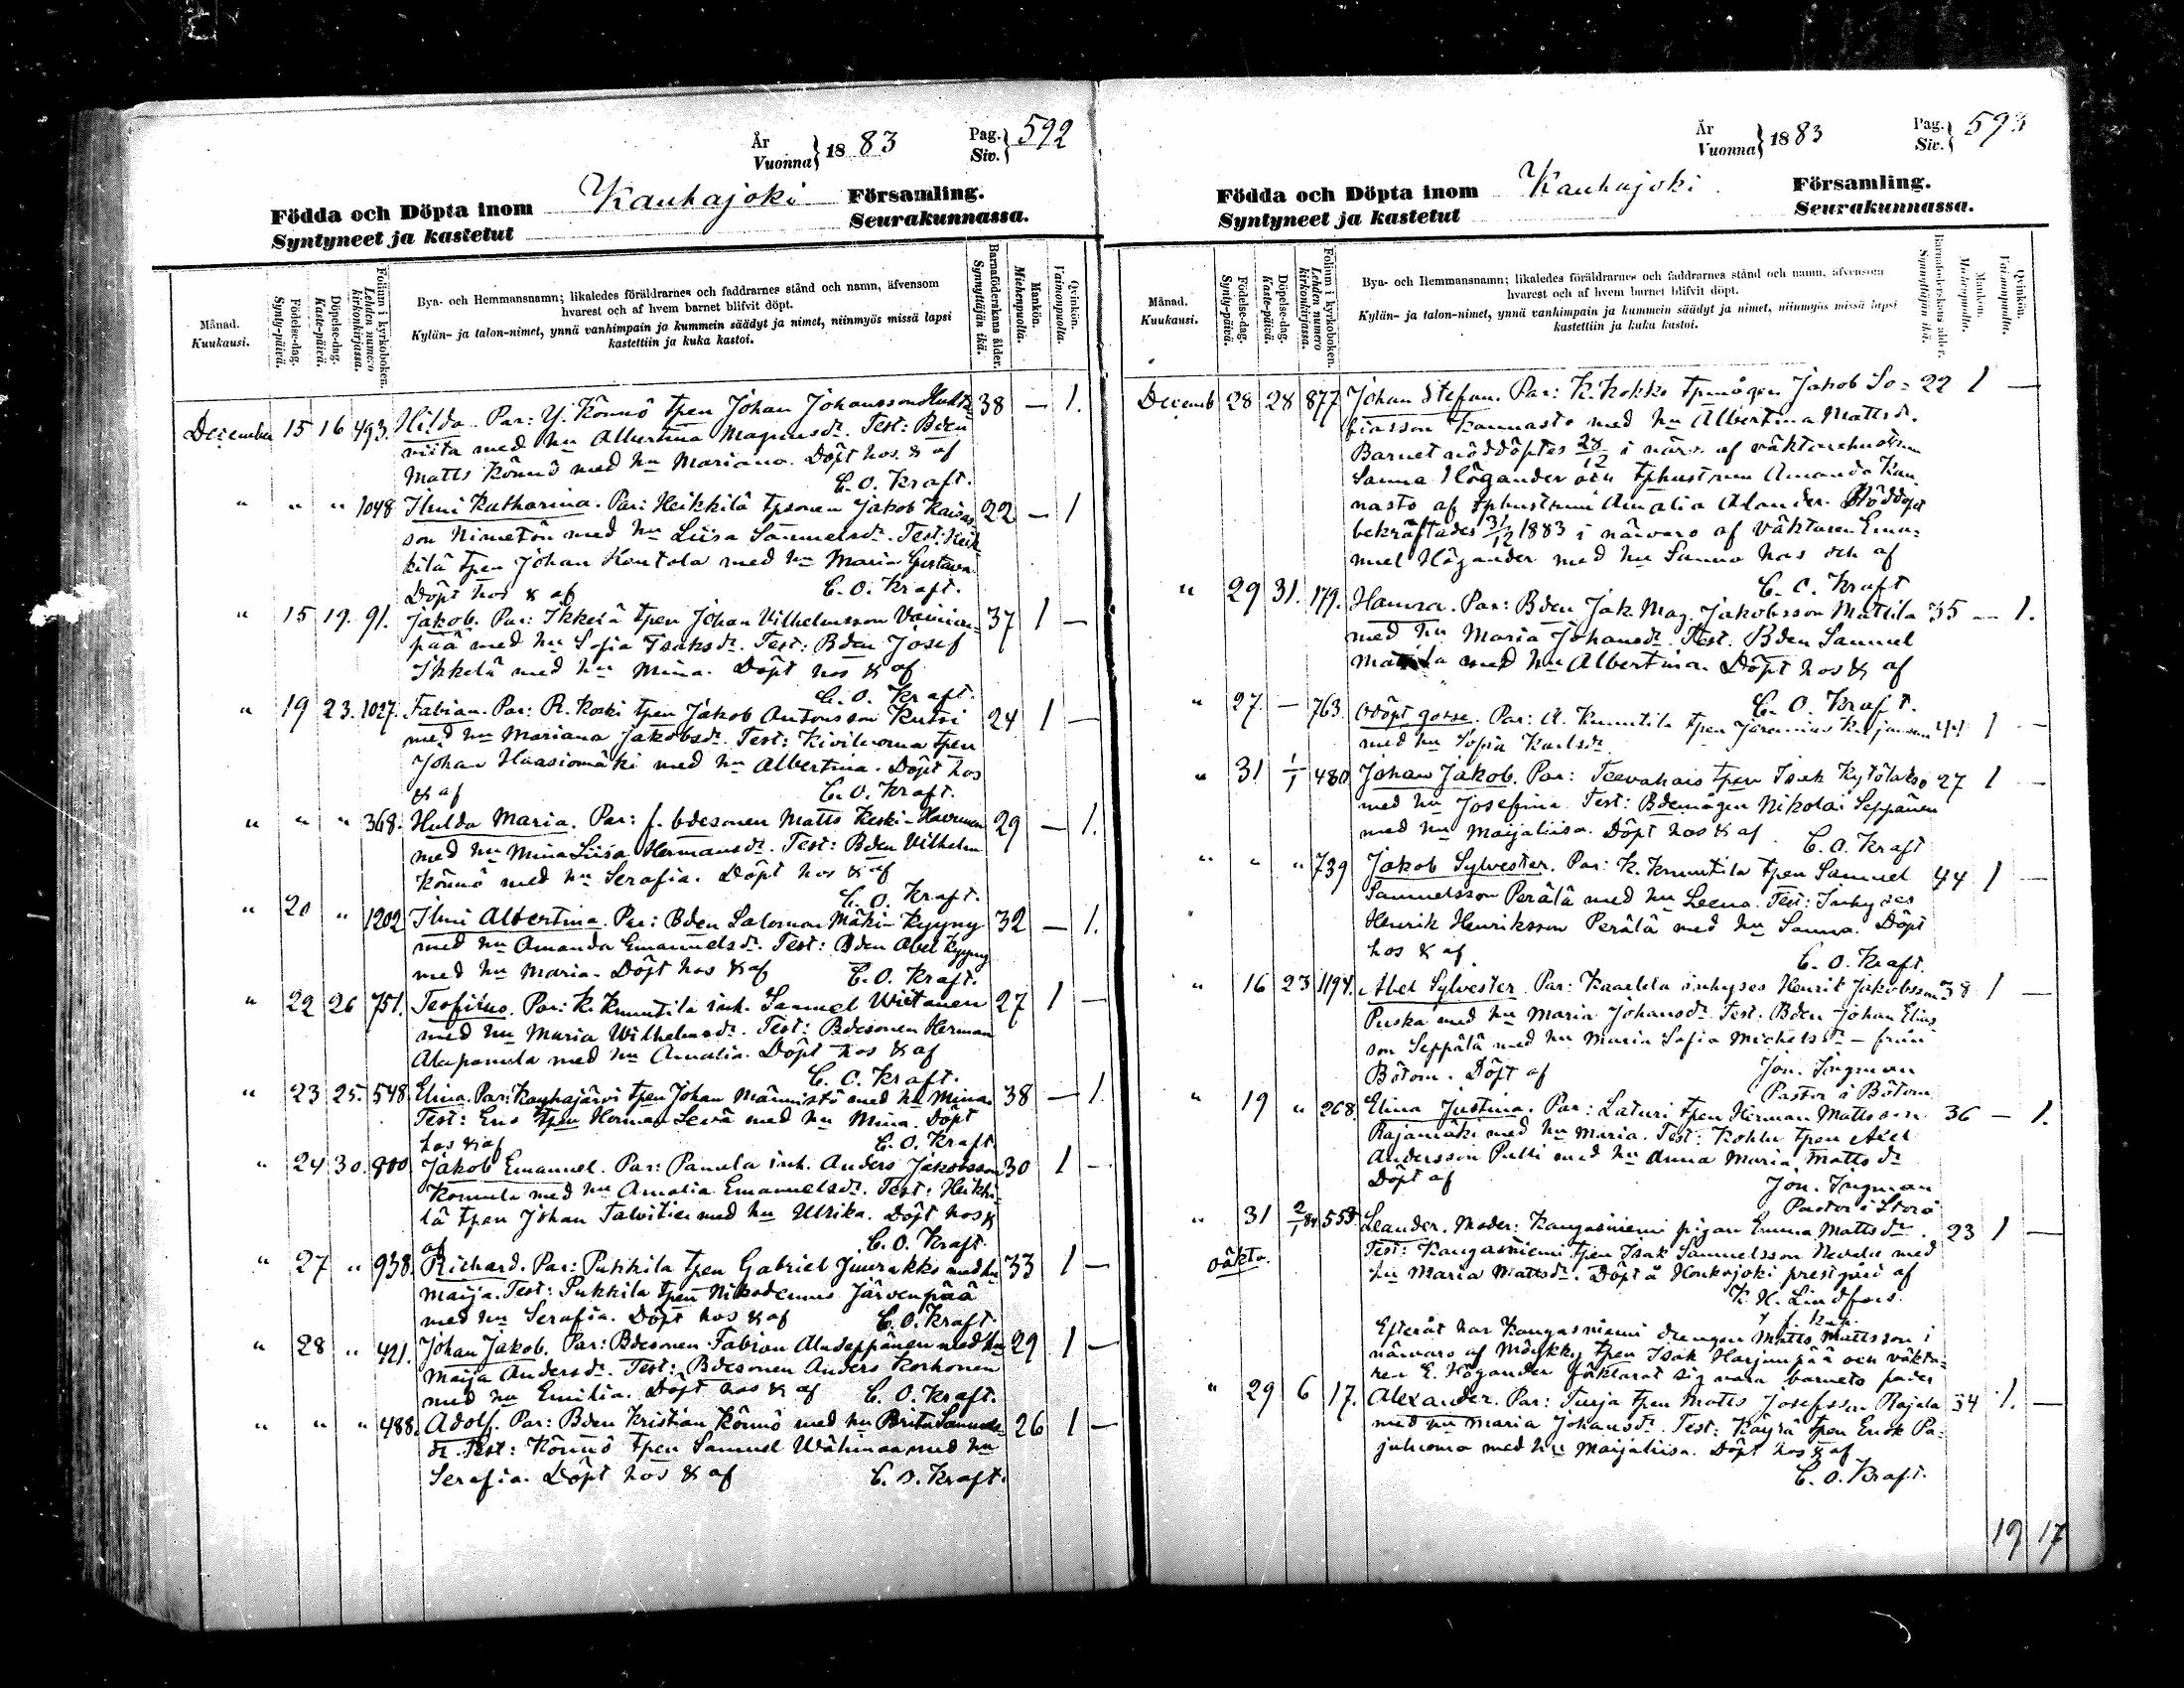 År Vuonna 1883 Pag. Siv. 592
Födda och Döpta inom Kauhajoki Församling.
Syntyneet ja kastetut Seurakunnassa.
Månad. Kuukausi.
Födelse-dag. Synty-päivä.
Döpelse-dag. Kaste-päivä.
Folium i kyrkoboken. Lehden numero kirkonkirjassa.
Bya- och Hemmansnamn; likaledes föräldrarnes och faddrarnes stånd och namn, äfvensom
hvarest och af hvem barnet blifvit döpt.
Kylän- ja talon-nimet, ynnä vanhimpain ja kummein säädyt ja nimet, niinmyös missä lapsi
kastettiin ja kuka kastoi.
Barnaföderskans ålder. Synnyttäjän ikä.
Mankön. Miehenpuolta.
Qvinkön. Vaimonpuolta.
December 15 16 493. Hilda. Par: Y. Könnö tpen Johan Johansson 38 — 1.
viita med hu Albertina Magnusdr. Test: Bden
Matts Könnö med hu Mariana. Döpt hos & af
C. O. Kraft.
" " " 1048 Ilmi Katharina. Par: Heikkilä tpsonen Jakob Kaisas 22 — 1
son Nimetön med hu Liisa Samuelsdr. Test: Heik-
kilä tpen Johan Kontola med hu Maria Gustava.
Döpt hos & af C. O. Kraft.
" 15 19. 91. Jakob. Par: Ikkelä tpen Johan Vilhelmsson Vainion- 37 1 —
pää med hu Sofia Isaksdr. Test: Bden Josef
Ikkelä med hu Mina. Döpt hos & af
C. O. Kraft.
" 19 23. 1027. Fabian. Par: R. Koski tpen Jakob Antonsson Kutsi 24 1 —
med hu Mariana Jakobsdr. Test: Kiviluoma tpen
Johan Haasiomäki med hu Albertina. Döpt hos
& af C. O. Kraft.
" " " 368. Hulda Maria. Par: f. bdesonen Matts Keski-Havunen 29 — 1.
med hu Mina Liisa Hermansdr. Test: Bden Vilhelm
Könnö med hu Serafia. Döpt hos & af
C. O. Kraft.
" 20 " 1202 Ilmi Albertina. Par: Bden Salomon Mäki-Kyyny 32 — 1.
med hu Amanda Emanuelsdr. Test: Bden Abel Kyyny
med hu Maria. Döpt hos & af C. O. Kraft.
" 22 26 751. Teofilus. Par: K. Knuutila inh. Samuel Wiitanen 27 1 —
med hu Maria Wilhelmsdr. Test: Bdesonen Herman
Alapanula med hu Amalia. Döpt hos & af
C. O. Kraft.
" 23 25. 548. Elina. Par: Kauhajärvi tpen Johan Männistö med hu Mina 38 — 1.
Test: Ens tpen Herman Levä med hu Mina. Döpt
hos & af C. O. Kraft.
" 24 30. 800 Jakob Emanuel. Par: Panula inh. Anders Jakobsson 30 1 —
Komula med hu Amalia Emanuelsdr. Test: Heikki-
lä tpen Johan Talvitie med hu Ulrika. Döpt hos &
af C. O. Kraft.
" 27 " 938. Richard. Par: Pukkila tpen Gabriel Juurakko med hu 33 1 —
Maija. Test: Pukkila tpen Nikodemus Järvenpää
med hu Serafia. Döpt hos & af C. O. Kraft.
" 28 " 421. Johan Jakob. Par: Bdesonen Fabian Alaseppänen med hu 29 1 —
Maija Andersdr. Test: Bdesonen Anders Korhonen
med hu Emilia. Döpt hos & af C. O. Kraft.
" " " 488. Adolf. Par: Bden Kristian Könnö med hu Brita Samuels 26 1 —
dr. Test: Könnö tpen Samuel Wähämaa med hu
Serafia. Döpt hos & af C. O. Kraft.
År Vuonna 1883 Pag. Siv. 593
Födda och Döpta inom Kauhajoki Församling.
Syntyneet ja kastetut Seurakunnassa.
Månad. Kuukausi.
Födelse-dag. Synty-päivä.
Döpelse-dag. Kaste-päivä.
Folium i kyrkoboken. Lehden numero kirkonkirjassa.
Bya- och Hemmansnamn; likaledes föräldrarnes och faddrarnes stånd och namn, äfvensom
hvarest och af hvem barnet blifvit döpt.
Kylän- ja talon-nimet, ynnä vanhimpain ja kummein säädyt ja nimet, niinmyös missä lapsi
kastettiin ja kuka kastoi.
Barnaföderskans ålder. Synnyttäjän ikä.
Mankön. Miehenpuolta.
Qvinkön. Vaimonpuolta.
Decemb 28 28 877 Johan Stefan. Par: K. Kokko tpmågen Jakob So- 22 1 —
fiasson Kannasto med hu Albertina Mattsdr.
Barnet nöddöptes 28/12 i närv. af väktarehustrun
Sanna Högander och tphustrun Amanda Kan
nasto af tphustrun Amalia Alander. Nöddopet
bekräftades 31/12 1883 i närvaro af väktaren Ema-
nuel Högander med hu Sanna hos och af
C. O. Kraft
" 29 31. 179. Hanna. Par: Bden Jak. Mag. Jakobsson Mattila 35 — 1.
med hu Maria Johansdr. Test. Bden Samuel
Mattila med hu Albertina. Döpt hos & af
C. O. Kraft.
" 27. — 763. Odöpt gosse. Par: A. Knuutila tpen Jeremias 44 1 —
med hu Sofia Karlsdr.
" 31 1/1 480 Johan Jakob. Par: Teevahais tpen Isak Kytölakso 27 1 —
med hu Josefina. Test: Bdemågen Nikolai Seppänen
med hu Maijaliisa. Döpt hos & af
C. O. Kraft
" " " 739 Jakob Sylvester. Par: K. Knuutila tpen Samuel 44 1 —
Samuelsson Perälä med hu Leena. Test: Inhyses
Henrik Henriksson Perälä med hu Sanna. Döpt
hos & af
C. O. Kraft.
" 16 23 1194. Abel Sylvester. Par: inhyses Henrik Jakobsson 38 1 —
Puska med hu Maria Johansdr. Test: Bden Johan Elias
son Seppälä med hu Maria Sofia Michelsdr — från
Bötom. Döpt af Jon. Ingman
Pastor i Bötom
" 19 " 268. Elina Justina. Par: Laturi tpen Herman Mattsson 36 — 1.
Rajamäki med hu Maria. Test: tpen Axel
Andersson Pulli med hu Anna Maria Mattsdr
Döpt af Jon. Ingman
Pastor i Storå
" 31 2/1 84 553. Leander. Moder: Kangasniemi pigan Emma Mattsdr. 23 1 —
oäkta. Test: Kangasniemi tpen Isak Samuelsson Nevala med
hu Maria Mattsdr. Döpt å Honkajoki prestgård af
K. H. Lindfors.
Efteråt har Kangasniemi drengen Matts Mattsson i
närvaro af Möykky tpen Isak Harjunpää och väkta-
ren E. Högander förklarat sig vara barnets fader
" 29 6 17. Alexander. Par: Turja tpen Matts Josefsson Rajala 34 1. —
med hu Maria Johansdr. Test: Käyrä tpen Enok Pa-
juluoma med hu Maijaliisa. Döpt hos & af
C. O. Kraft.
19 17